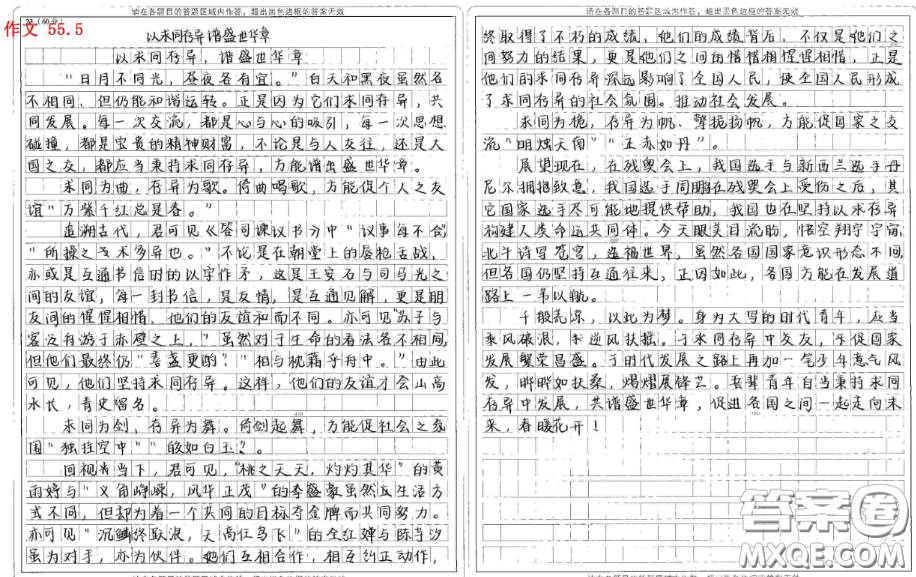 请在各题目的答题区域内作答，超出黑色边框的答案无效
作文 55.5
以求同存异谐盛世华章
以求同存异，谐盛世华章
“日月不同光，昼夜各有宜。”白天和黑夜虽然各
不相同，但仍能和谐运转。正是因为它们求同存异，共
同发展。每一次交流，都是心与心的吸引，每一次思想
碰撞，都是宝贵的精神财富，不论是与人友往，还是大
国之交，都应当秉持求同存异，方能谱出盛世华章。
求同为曲，存异为歌。倚曲唱歌，方能促个人之友
谊“万紫千红总是春。”
追溯古代，君可见《答司谏议书》方“议事每不合
“所操之术多异也。”不论是在朝堂上的唇枪舌战，
亦或是互通书信时的以字作矛，这是王安石与司马光之
间的友谊，每一封书信，是友情，是互通见解，更是朋
友间的惺惺相惜，他们的友谊和而不同。亦可见“苏子与
客泛舟游于赤壁之上，”虽然对于生命的看法各不相同，
但他们最终仍“肴盏更酌？”“相与枕藉乎舟中。”由此
可见，他们坚持求同存异。这样，他们的友谊才会山高
水长，青史留名。
求同为剑，存异为舞。倚剑起舞，方能促社会之氛
围“独挂空中”“敢如白玉？”
回视当下，君可见，“桃之夭夭，灼灼其华”的黄
雨婷与“义角峥嵘，风华正茂”的李盛豪虽然生活方
式不同，但却为着一个共同的目标夺金牌而共同努力。
亦可见“沉鳞终跃浪，天高任鸟飞”的全红婵与陈芋汐
虽为对手，亦为伙伴。她们互相合作，相互纠正动作，
请在各题目的答题区域内作答，超出黑色边框的答案无效
终取得了不朽的成绩，他们的成绩背后，不仅是他们之
间努力的结果，更是他们之间的惜惜相惺惺相惜，正是
他们的求同存异深远影响了全国人民，使全国人民形成
了求同存异的社会氛围。推动社会发展。
求同为桅，存异为帆、擎桅扬帆，方能促国家之交
流“明烛天南”“正赤如丹”。
展望现在，在残奥会上，我国选手与新西兰选手丹
尼尔拥抱致意，我国选手同鹏在残奥会上受伤之后，其
它国家选手尽可能地提供帮助，我国也在坚持以求存异
构建人类命运共同体。今天眼美目流盼，悟空翔宇宇宙，
北斗诗写苍穹，造福世界，虽然各国国家意识形态不同，
但各国仍坚持互通往来，正因如此，各国方能在发展道
路上一苇以航。
千般荒凉，以此为梦。身为大写的时代青年，应当
乘风破浪，逆风扶摇。于求同存异中交友，促国家
发展繁荣昌盛。于时代发展之路上再加一笔少年意气风
发，晔晔如扶桑，熠熠展锋芒。吾辈青年自当秉持求同
存异中发展，共谐盛世华章，促进各国之间一起走向未
来，春暖花开！
答案圈
MXQE.COM